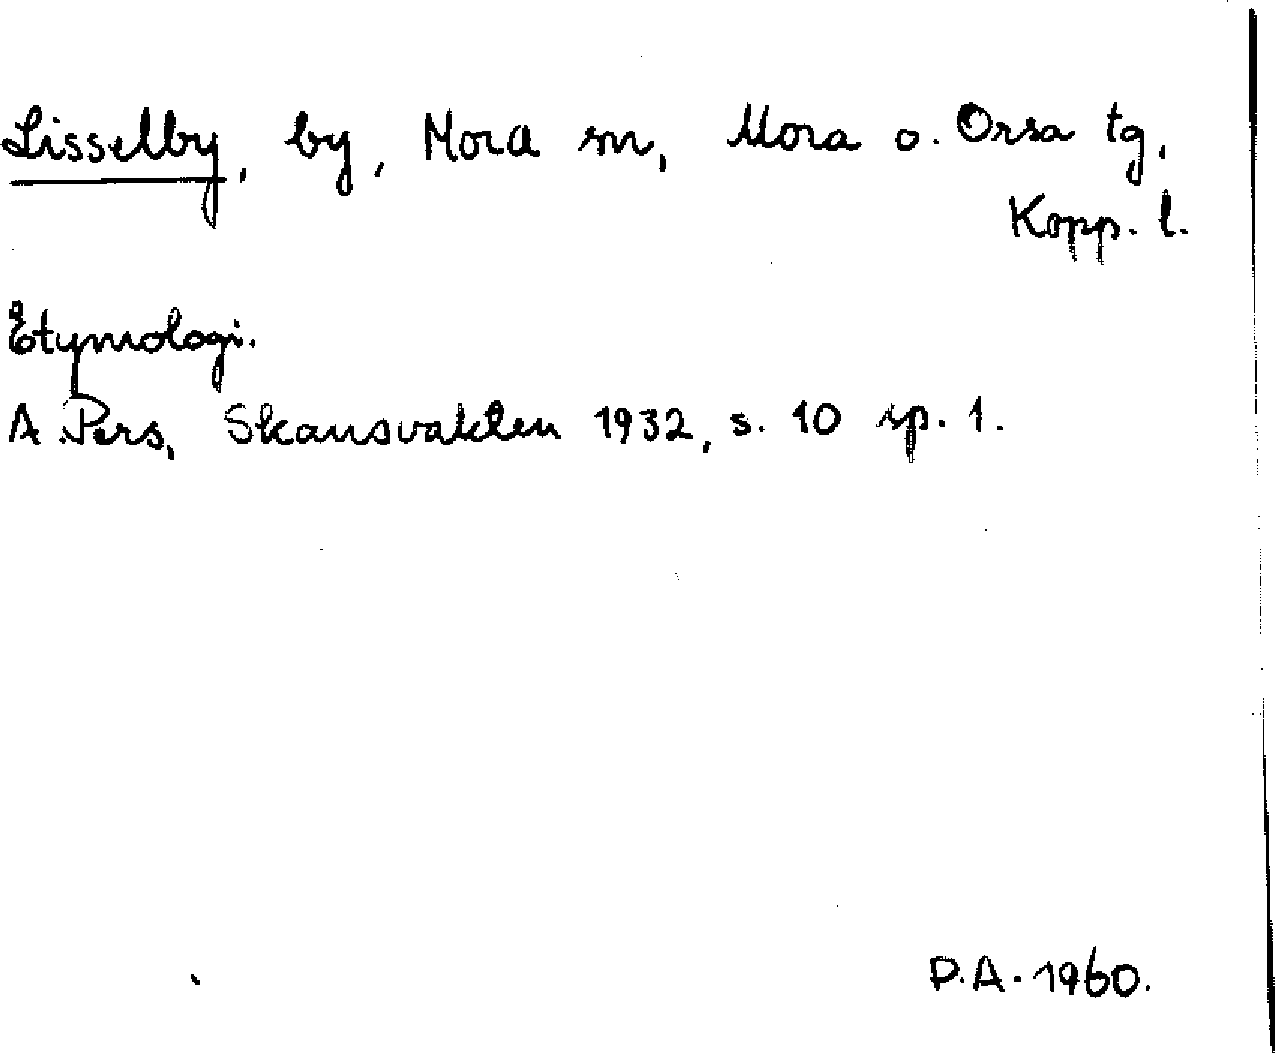 Lisselby, by, Mora sn, Mora o. Orsa tg,
Kopp. l.
Etymologi.
A. Pers, Skansvakten 1932, s. 10 sp. 1.
P.A. 1960.